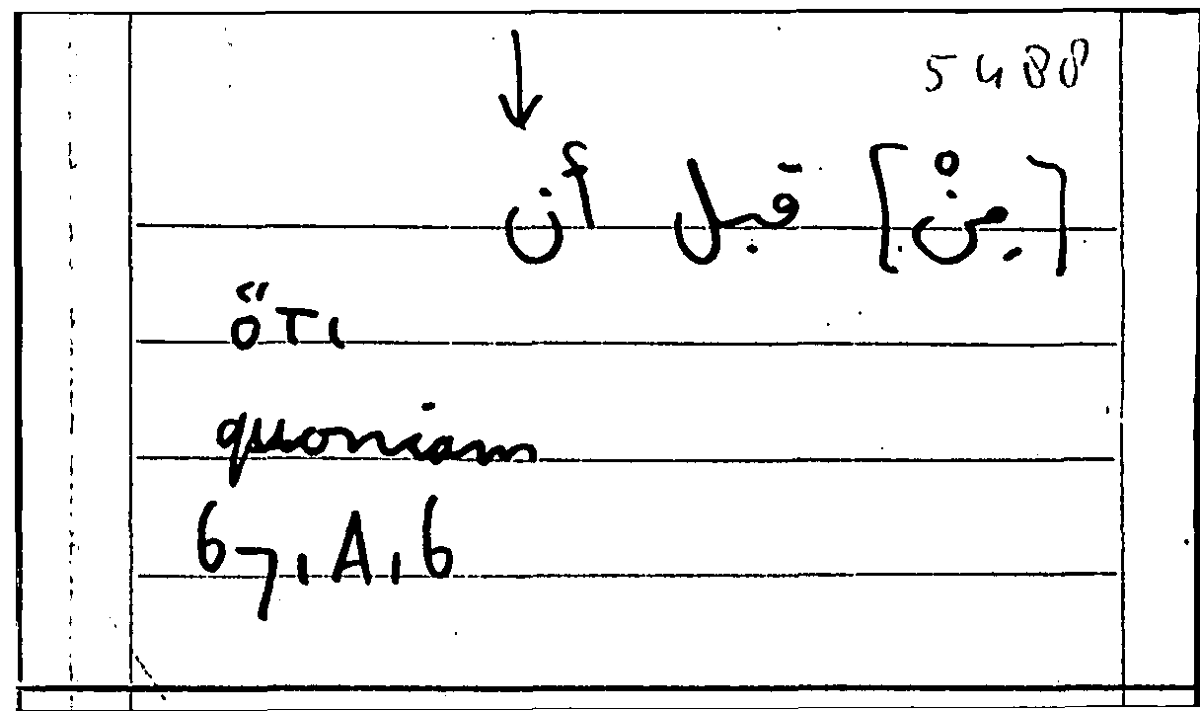 5488
↓
[مِنْ] قبل أن
ὅτι
quoniam
67,A,6